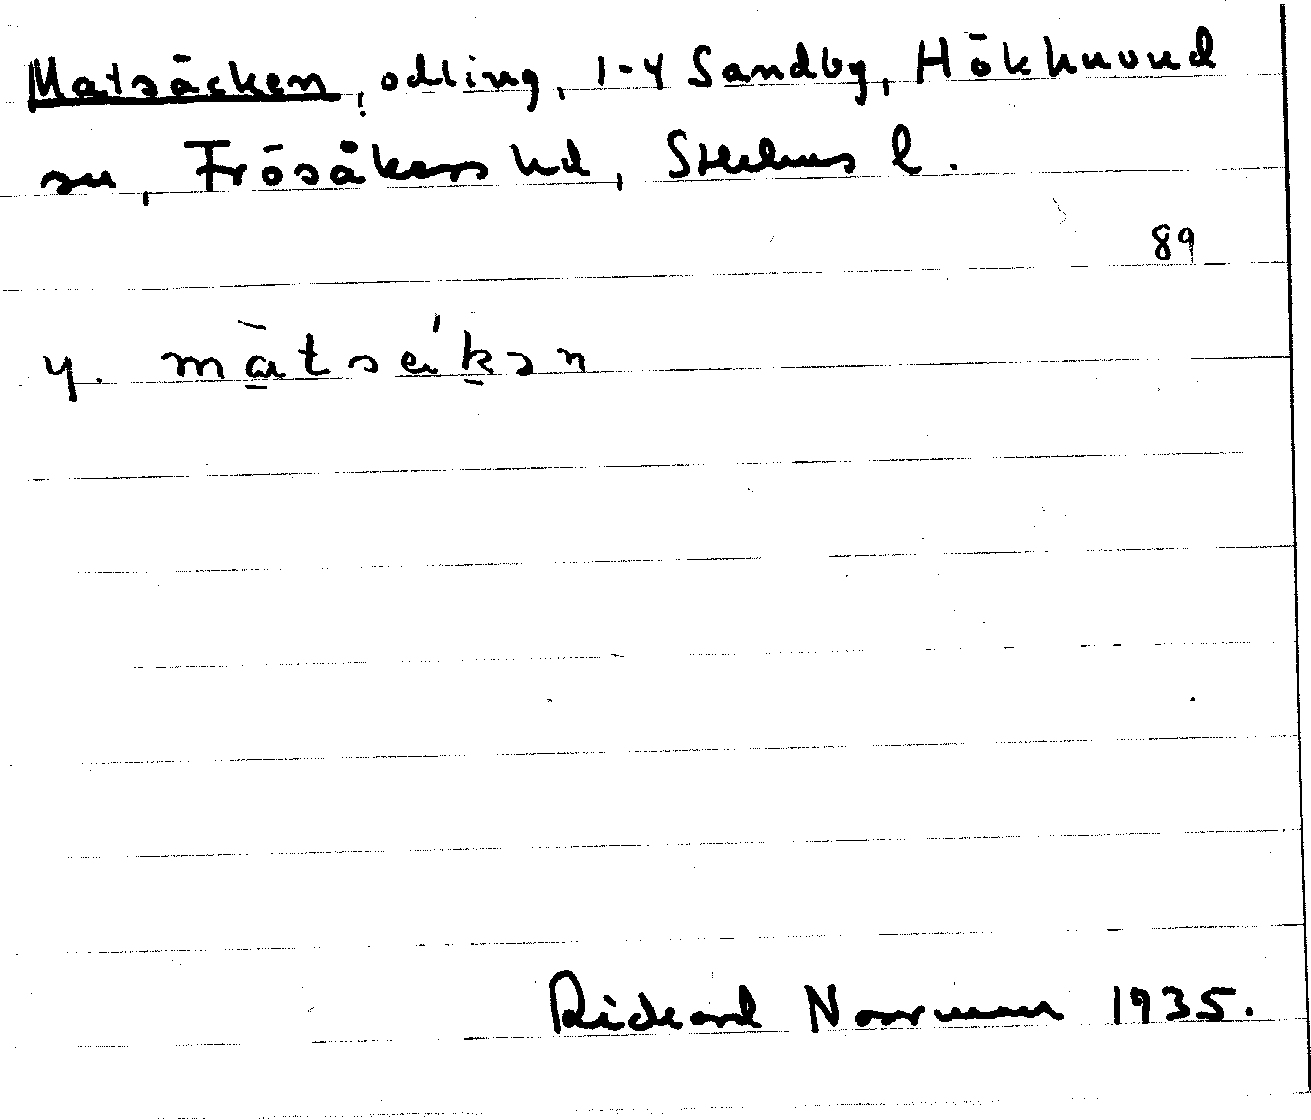 Matsäcken, odling, 1-4 Sandby, Hökhuvud
sn, Frösåkers hd, Sthlms l.
89
4. màtsékən
Rickard Norrman 1935.